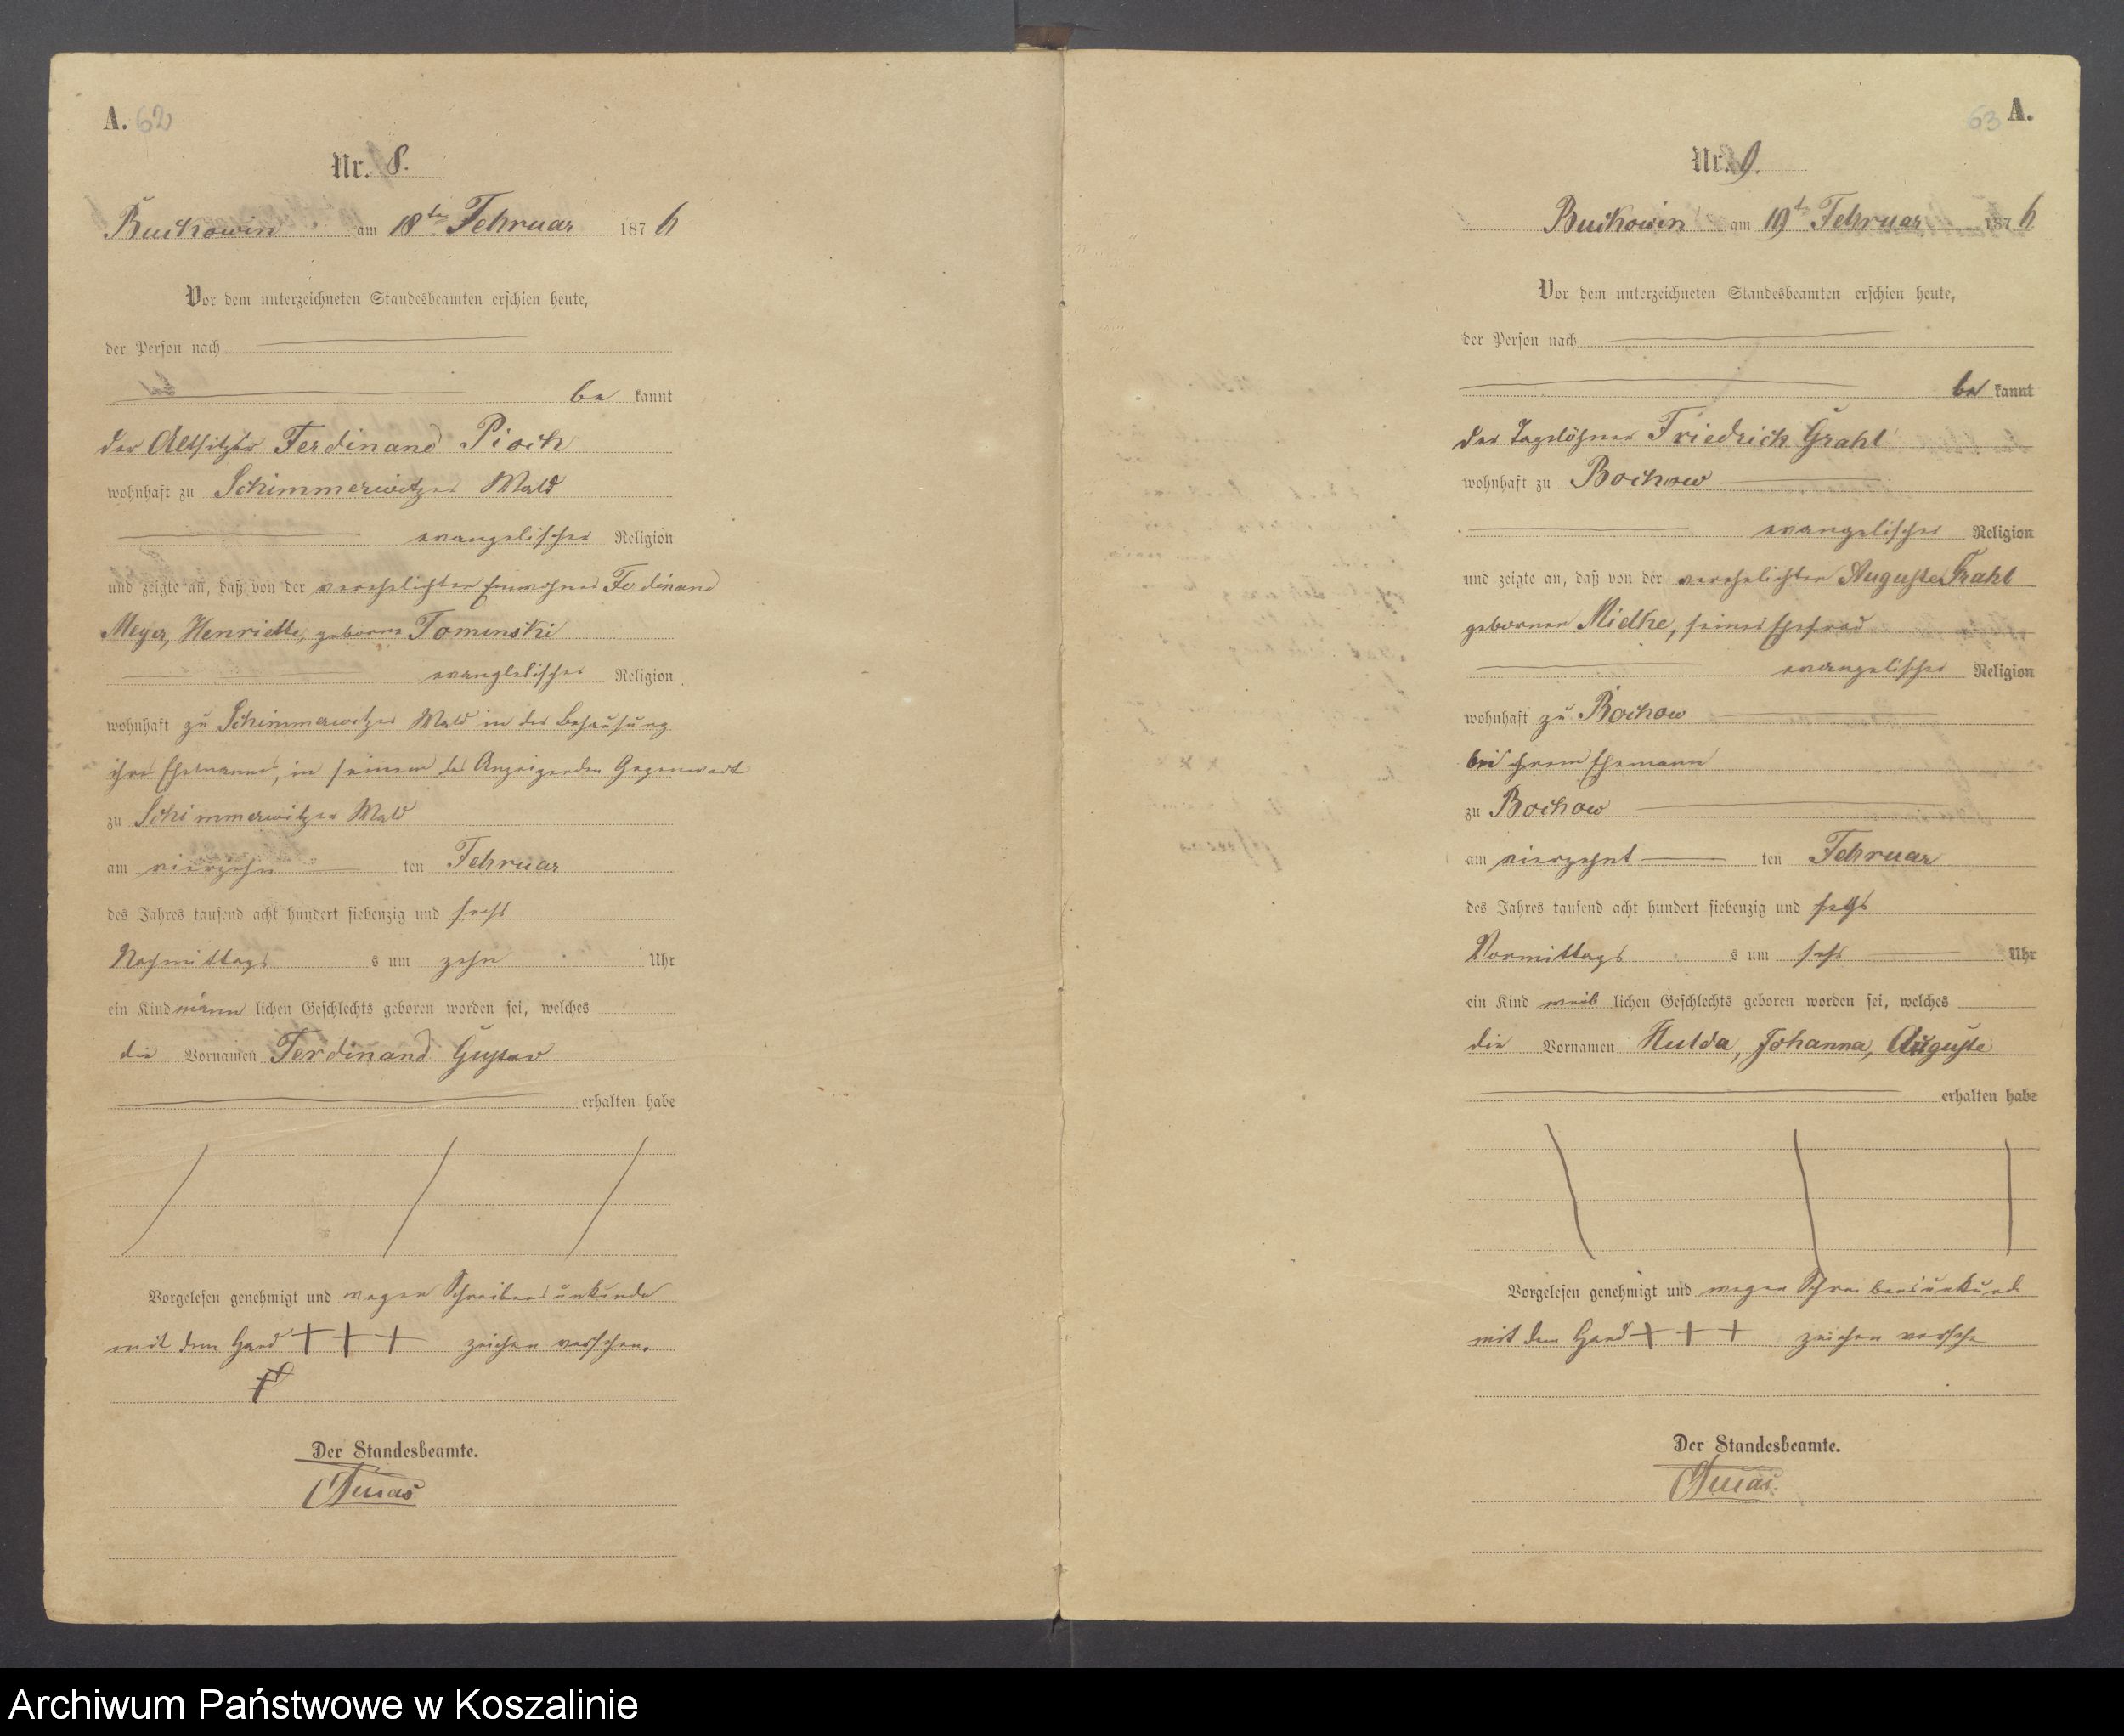 A. 62
Nr. 8.
Buckowin am 18ten Februar 1876
Vor dem unterzeichneten Standesbeamten erschien heute,
der Person nach
be kannt
der Altsitzer Ferdinand Pioch
wohnhaft zu Schimmerwitzer Wald
evangelischer Religion
und zeigte an, daß von der verehelichten Einwohner Ferdinand
Meyer, Henriette, geborne Tominski
evanglelischer Religion
wohnhaft zu Schimmerwitzer Wald in der Behausung
ihres Ehemannes, in seinem des Anzeigenden Gegenwart
zu Schimmerwitzer Wald
am vierzehn ten Februar
des Jahres tausend acht hundert siebenzig und sechs
Nachmittags s um zehn Uhr
ein Kind männ lichen Geschlechts geboren worden sei, welches
die Vornamen Ferdinand Gustav
erhalten habe
Vorgelesen genehmigt und wegen Schreibensunkunde
mit dem Hand +++ zeichen versehen.
Der Standesbeamte.
A.
63
Nr. 9.
Buckowin am 19t Februar 1876
Vor dem unterzeichneten Standesbeamten erschien heute,
der Person nach
be kannt
der Tagelöhner Friedrich Grahl
wohnhaft zu Bochow
evangelischer Religion
und zeigte an, daß von der verehelichten Auguste Grahl
gebornen Mielke, seiner Ehefrau
evangelischer Religion
wohnhaft zu Bochow
bei ihrem Ehemann
zu Bochow
am vierzehnt ten Februar
des Jahres tausend acht hundert siebenzig und sechs
Vormittags s um sechs Uhr
ein Kind weib lichen Geschlechts geboren worden sei, welches
die Vornamen Hulda, Johanna, Auguste
erhalten habe
Vorgelesen genehmigt und wegen Schreibensunkunde
mit dem Hand +++ zeichen versehe
Der Standesbeamte.
Archiwum Państwowe w Koszalinie